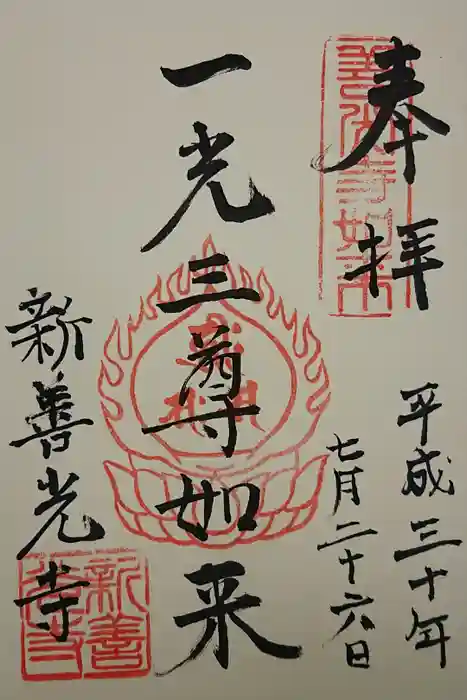 奉拝
善光寺如来
平成三十年
七月二十六日
一光三尊如来
新善光寺
新善光寺